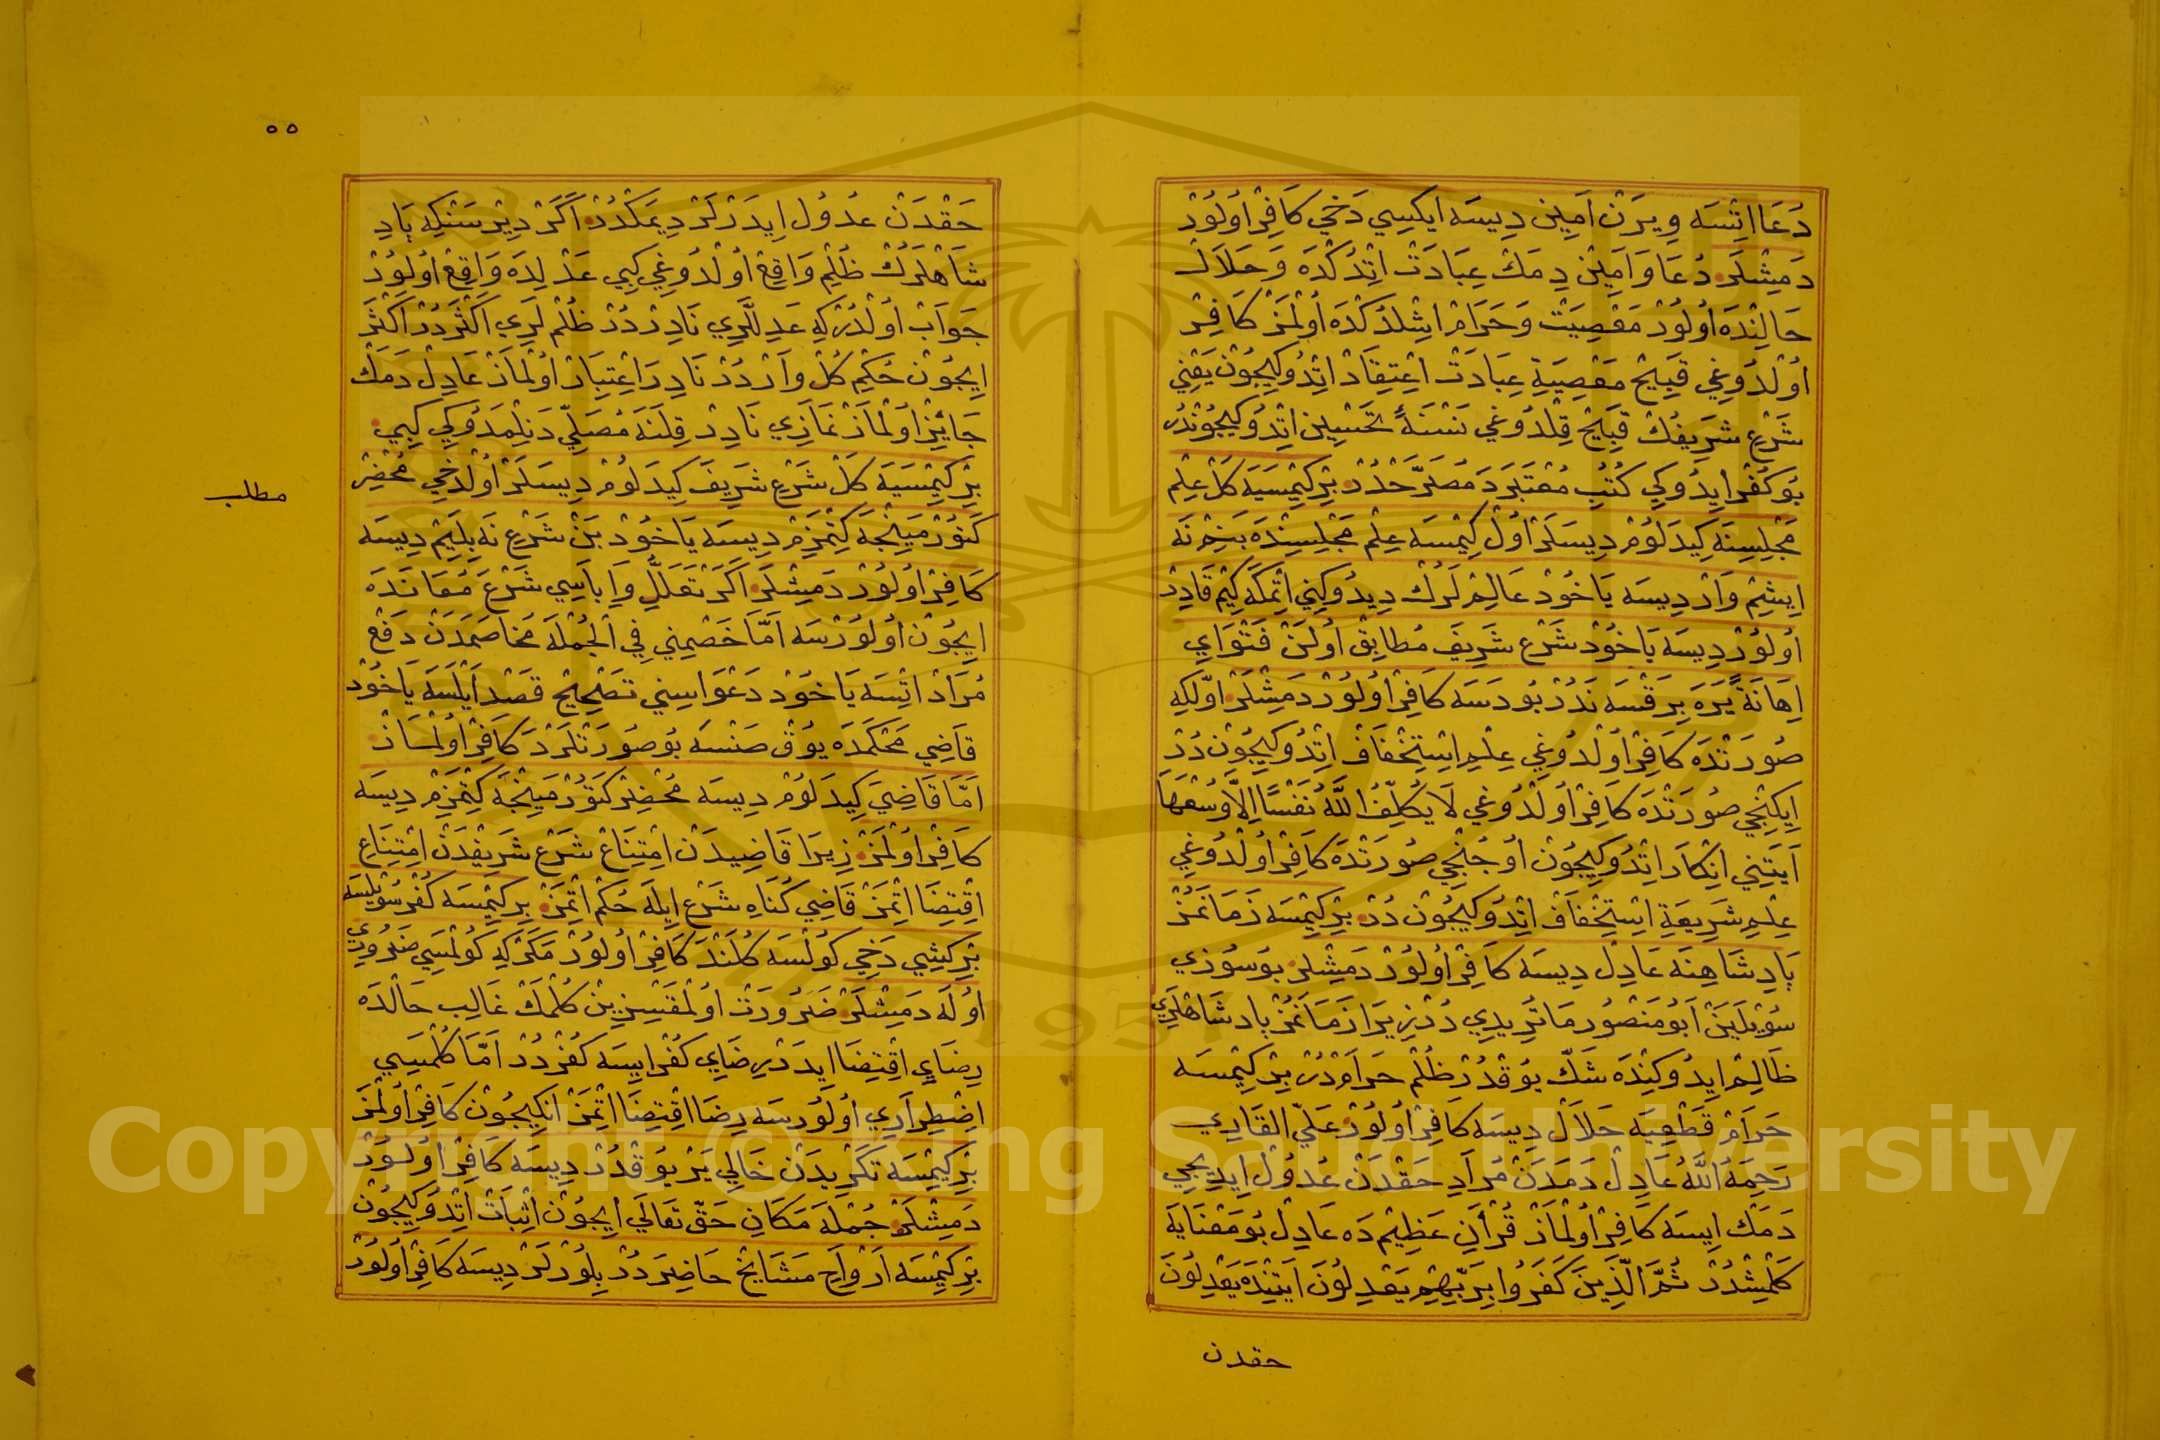 دُعَا اتْسَه وِيرَنْ اٰمِينْ دِيسَه ايكِسِي دَخِي كَافِرْ اوُلوُرْ
دَمِشْلَرْ دُعَا وَ اٰمِينْ دِمَكْ عِبَادَتْ اتْدُكْدَه وَ حَلَالْ
حَالِنْدَه اوُلوُرْ مَعْصِيَتْ وَ حَرَامْ اشْلَدُكْدَه اوُلْمَزْ كَافِرْ
اوُلْدُوغِي قَبِيحْ مَعْصِيَةِ عِبَادَتْ اعْتِقَادْ اتْدُوكِيچُونْ يَعْنِي
شَرْعِ شَرِيفُكْ قَبِيحْ قِلْدُوغِي نَسْنَهٔ تَحْسِينْ اتْدُوكِيچُونْدُرْ
بُو كُفْرْ ايدُوكِي كُتُبِ مُعْتَبَرَدَ مُصَرَّحْدُرْ بِرْ كِيمْسَيَه كَلْ عِلْم
مَجْلِسِنَه كِيدَلُومْ دِيسَلَرْ اوُلْ كِيمْسَه عِلْم مَجْلِسِنْدَه بَنِمْ نَه
ايشِمْ وَارْ دِيسَه يَاخُودْ عَالِمْلَرُكْ دِيدُوكِنِي اتْمَكَه كِيمْ قَادِرْ
اوُلوُرْ دِيسَه يَاخُودْ شَرْعِ شَرِيفَ مُطَابِقْ اوُلَنْ فَتْوَايِ
اِهَانَةً يَرَه بِرَقْسَه نَدُرْ بُو دَسَه كَافِرْ اوُلوُرْ دَمِشْلَرْ اوّلكِه
صُورَتْدَه كَافِرْ اوُلْدُوغِي عِلْمِ اسْتِخْفَافْ اتْدُوكِيچُونْدُرْ
ايكِنْجِي صُورَتْدَه كَافِرْ اوُلْدُوغِي لَا يُكَلِّفُ اللّٰهُ نَفْسًا اِلَّا وُسْعَهَا
آيَتِنِي انْكَارْ اتْدُوكِيچُونْ اوُچُنْجِي صُورَتْدَه كَافِرْ اوُلْدُوغِي
عِلْمِ شَرِيعَةِ اسْتِخْفَافْ اتْدُوكِيچُونْدُرْ بِرْ كِيمْسَه زَمَانَمُزْ
پَادِشَاهِنَه عَادِلْ دِيسَه كَافِرْ اوُلوُرْ دَمِشْلَرْ بُو سُوزِي
سُويْلَيَنْ اَبُو مَنْصُورِ مَاتُرِيدِي دُرْ زِيرَا زَمَانَمُزْ پَادِشَاهْلَرِي
ظَالِمْ ايدُوكِنْدَه شَكّ يُوقْدُرْ ظُلْم حَرَامْدُرْ بِرْ كِيمْسَه
حَرَامِ قَطْعِيَه حَلَالْ دِيسَه كَافِرْ اوُلوُرْ عَلِيّ القَارِي
رَحِمَهُ اللّٰهُ عَادِلْ دَمَدَنْ مُرَادِ حَقْدَنْ عُدُولْ ايدِيجِي
دَمَكْ ايسَه كَافِرْ اوُلْمَازْ قُرْاٰنِ عَظِيمْدَه عَادِلْ بُو مَعْنَايَه
كَلْمِشْدُرْ ثُمَّ الَّذِينَ كَفَرُوا بِرَبِّهِمْ يَعْدِلُونَ اٰيَتِنْدَه يَعْدِلُونَ
حقدن
٥٥
حَقْدَنْ عُدُولْ ايدَرْلَرْ دِيمَكْدُرْ اَكَرْ دِيرْسَنْكِه پَادِ
شَاهْلَرُكْ ظُلْمِ وَاقِعْ اوُلْدُوغِي كِبِي عَدْلِدَه وَاقِعْ اوُلوُرْ
جَوَابْ اوُلْدُرْكِه عَدِللَرِي نَادِرْدُرْ ظُلْملَرِي اَكْثَرْدُرْ اَكْثَرْ
ايچُونْ حُكْمِ كُلْ وَارْدُرْ نَادِرَ اعْتِبَارْ اوُلْمَازْ عَادِلْ دَمَكْ
جَائِزْ اوُلْمَازْ نَمَازِي نَادِرْ قِلَنَه مُصَلِّي دَنِلْمَدُوكِي كِبِي
بِرْ كِيمْسَيَه كَلْ شَرْعِ شَرِيفَ كِيدَلُومْ دِيسَلَرْ اوُلْدَخِي مُحْضِرْ
كَتُورْمَيِنْجَه كِتْمَزِمْ دِيسَه يَاخُودْ بَنْ شَرْعِ نَه بِلَيِمْ دِيسَه
كَافِرْ اوُلوُرْ دَمِشْلَرْ اَكَرْ تَعَلُّلِ وَ اِبَاسِي شَرْعَ مُعَانَدَه
ايچُونْ اوُلوُرْسَه اَمَّا خَصْمِنِي فِي الْجُمْلَه مُخَاصَمَدَنْ دَفْعِ
مُرَادْ اتْسَه يَاخُودْ دَعْوَاسِنِي تَصْحِيحْ قَصْدْ اَيْلَسَه يَاخُودْ
قَاضِي مَحْكَمَدَه يُوقْ صَنْسَه بُو صُورَتْلَرْدَ كَافِرْ اوُلْمَازْ
اَمَّا قَاضِيَ كِيدَلُومْ دِيسَه مُحْضِرْ كَتُورْمَيِنْجَه كِتْمَزِمْ دِيسَه
كَافِرْ اوُلْمَزْ زِيرَا قَاضِيدَنْ امْتِنَاعْ شَرْعِ شَرِيفْدَنْ امْتِنَاعِ
اقْتِضَا اتْمَزْ قَاضِي كُنَاهِ شَرْعِ ايلَه حُكْم اتْمَزْ بِرْ كِيمْسَه كُفْرْ سُويْلِسَه
بِرْ كِشِي دَخِي كُولْسَه كُلَنْدَ كَافِرْ اوُلوُرْ مَكَرْكِه كُولْمَسِي ضَرُورِي
اوُلَه دَمِشْلَرْ ضَرُورَتْ اوُلْمَقْسِزِينْ كُلْمَكْ غَالِبِ حَالْدَه
رِضَايِ اقْتِضَا ايدَدْرْ رِضَايِ كُفْرْ ايسَه كُفْرْدُرْ اَمَّا كُلْمَسِي
اضْطِرَارِي اوُلوُرْسَه رِضَا اقْتِضَا اتْمَزْ انِكِيچُونْ كَافِرْ اوُلْمَزْ
بِرْ كِيمْسَه تَكْرِيدَنْ خَالِي يَرْ يُوقْدُرْ دِيسَه كَافِرْ اوُلوُرْ
دَمِشْلَرْ جُمْلَه مَكَانِ حَقّ تَعَالٰي ايچُونْ اثْبَاتْ اتْدُوكِيچُونْ
بِرْ كِيمْسَه اَرْوَاحِ مَشَايِخْ حَاضِرَدُرْ بِلُورْلَرْ دِيسَه كَافِرْ اوُلوُرْ
مطلب
Copyright © King Saud University
1957